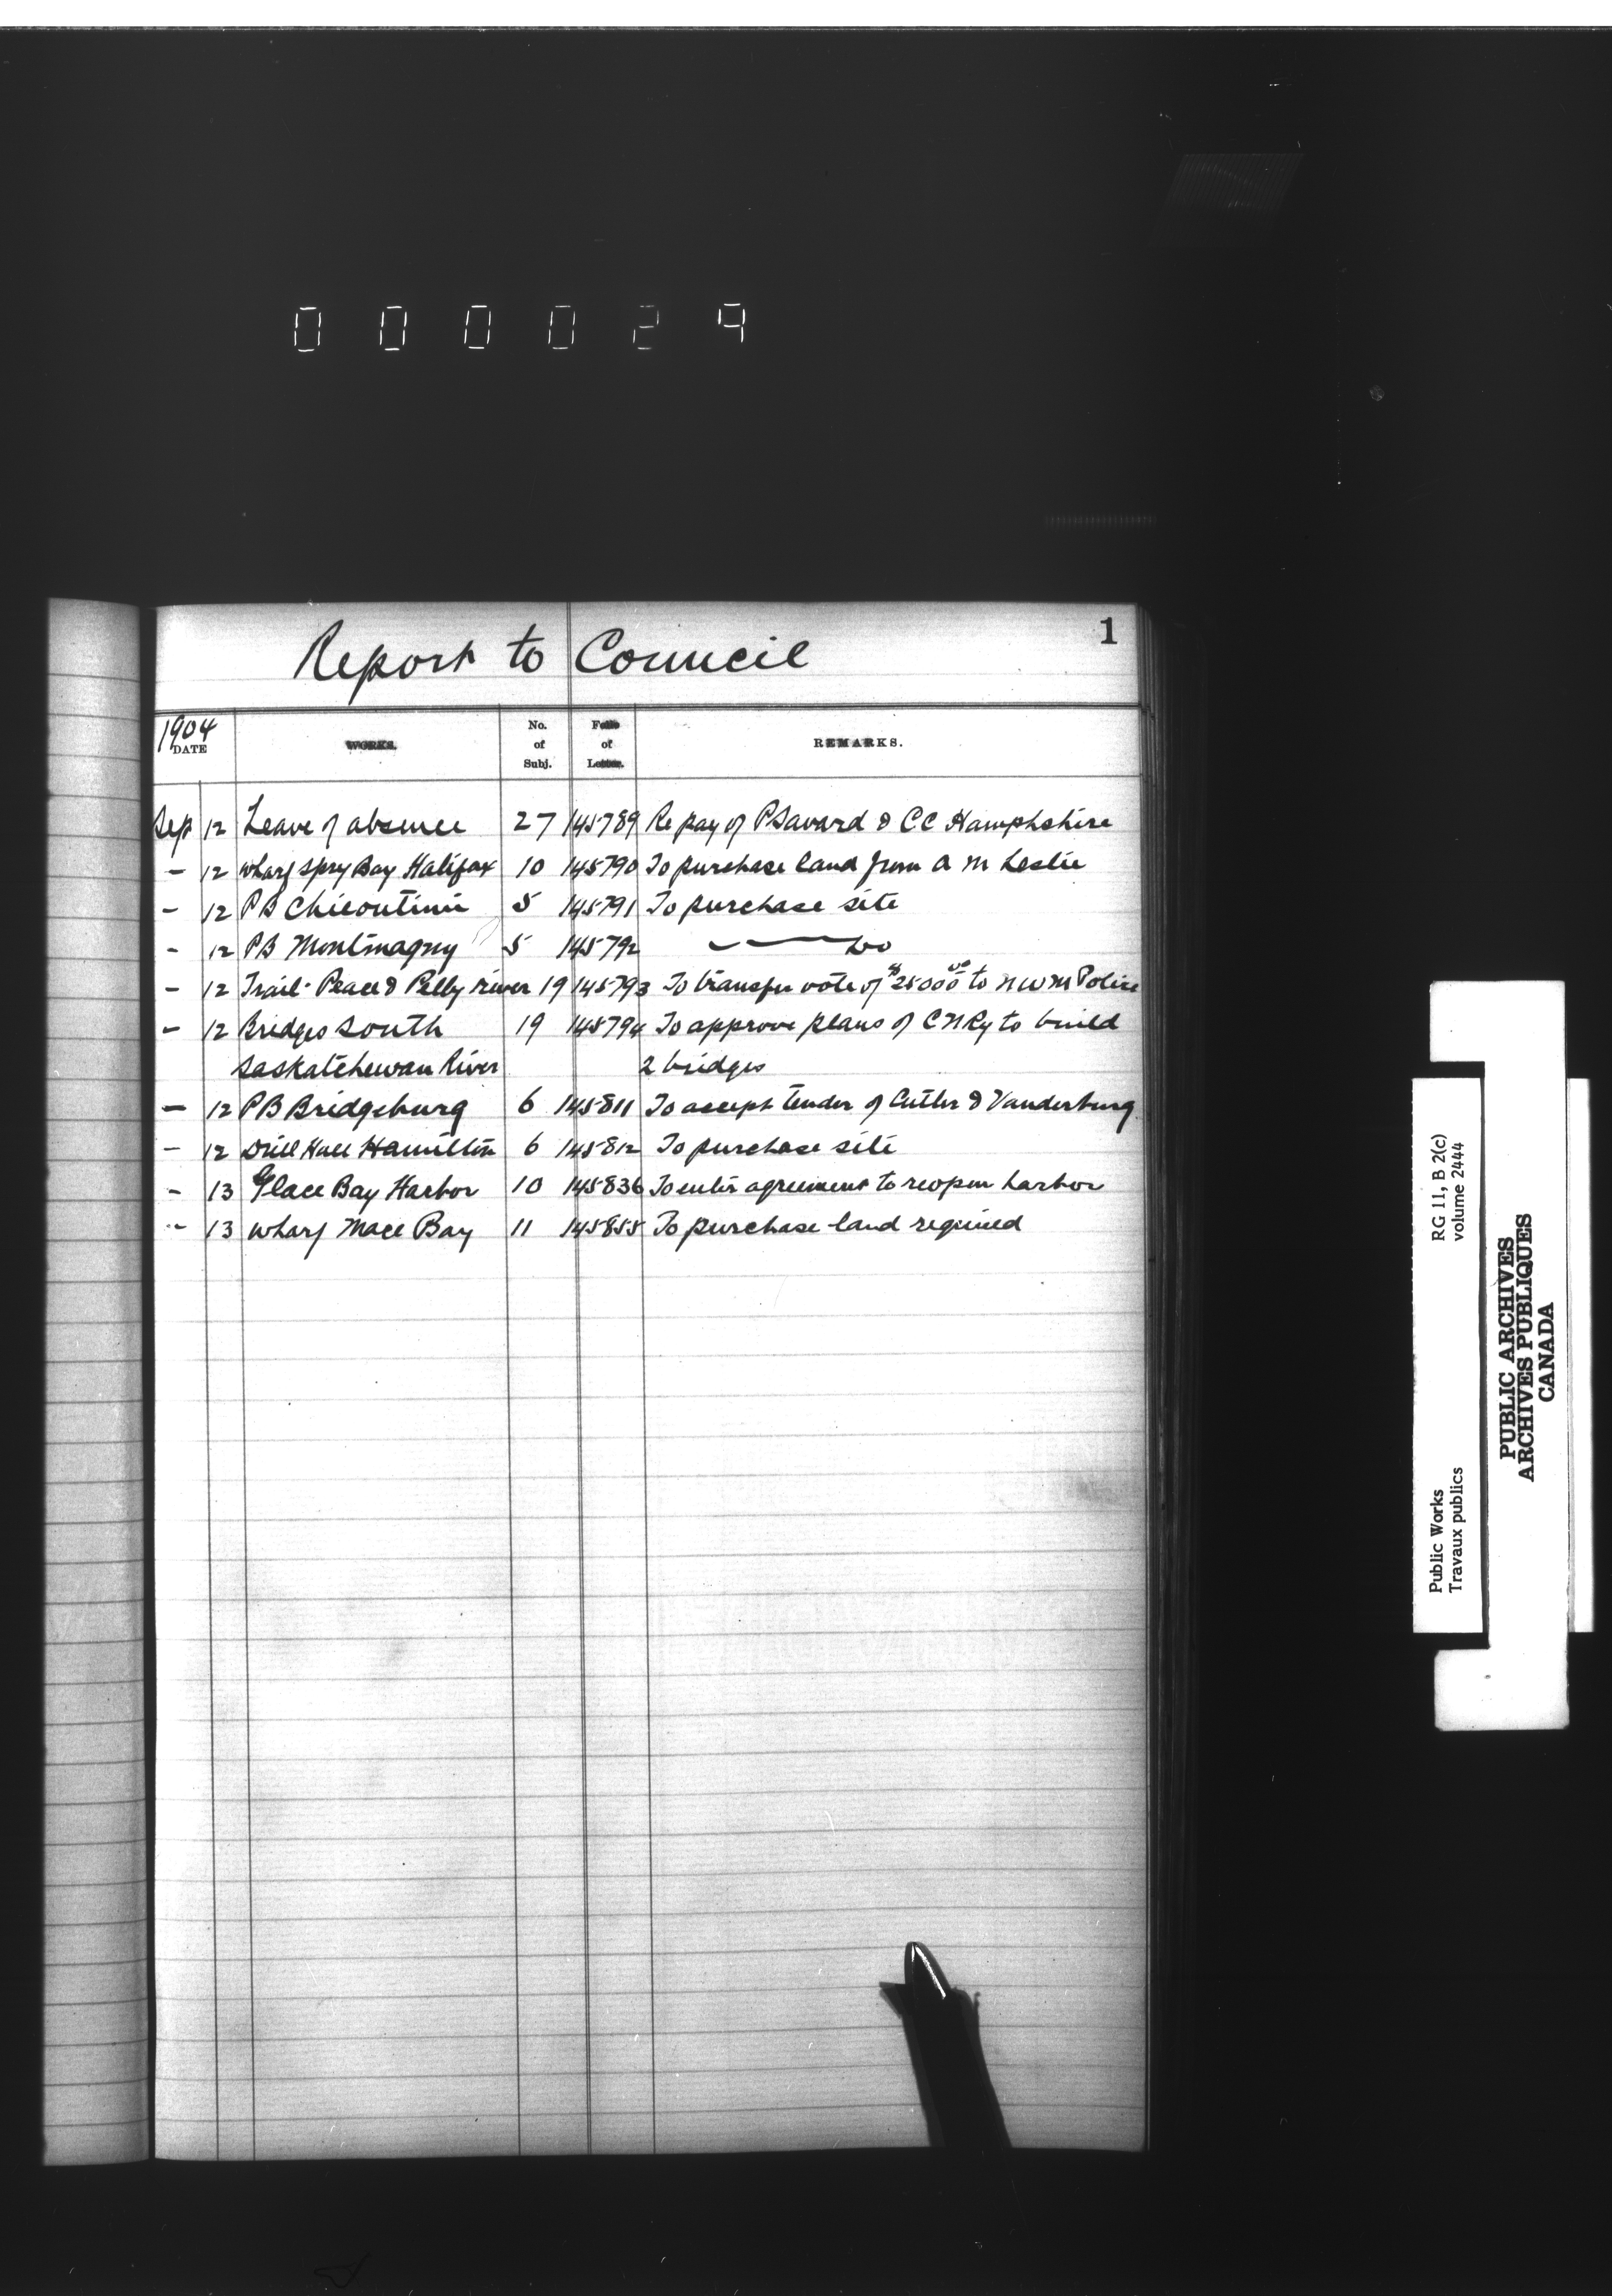 000029
Report to Council
1
1904
DATE WORKS. No. of Subj. Folio of Letter. REMARKS.
Sep 12 Leave of absence 27 145789 Re pay of P Savard & CC Hamphshire
- 12 Wharf Spry Bay Halifax 10 145790 To purchase land from A M Leslie
- 12 PB Chicoutimi 5 145791 To purchase site
- 12 PB Montmagny 5 145792 — do
- 12 Trail - Peace & Pelly river 19 145793 To transfer vote of $25000 00 to NWM Police
- 12 Bridges South 19 145794 To approve plans of C N Ry to build
Saskatchewan River 2 bridges
- 12 PB Bridgeburg 6 145811 To accept tender of Cutler & Vanderburg
- 12 Drill Hall Hamilton 6 145812 To purchase site
- 13 Glace Bay Harbor 10 145836 To enter agreement to reopen harbor
- 13 Wharf Mace Bay 11 145855 To purchase land required
Public Works
Travaux publics
RG 11, B 2(c)
volume 2444
PUBLIC ARCHIVES
ARCHIVES PUBLIQUES
CANADA